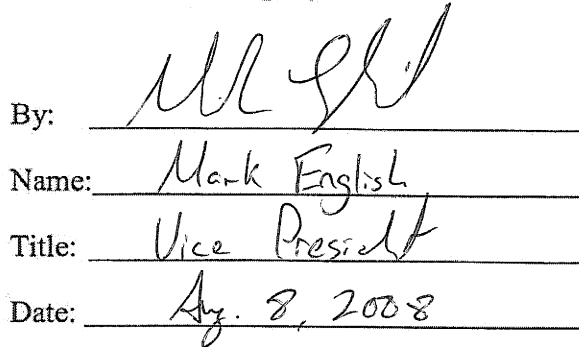 By:
Name: Mark English
Title: Vice President
Date: Aug. 8, 2008